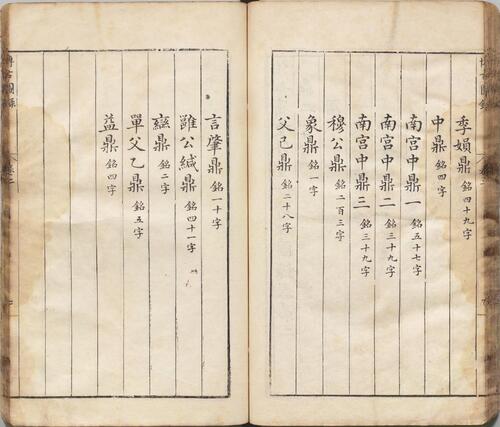 季娟鼎 銘四十九字
中鼎 銘四字
南宫中鼎一 銘五十七字
南宫中鼎二 銘三十九字
南宫中鼎三 銘三十九字
穆公鼎 銘二百三字
象鼎 銘一字
父己鼎 銘二十八字
言肇鼎 銘一十字
雝公緘鼎 銘四十一字
䜌鼎 銘二字
單父乙鼎 銘五字
益鼎 銘四字
博古圖錄